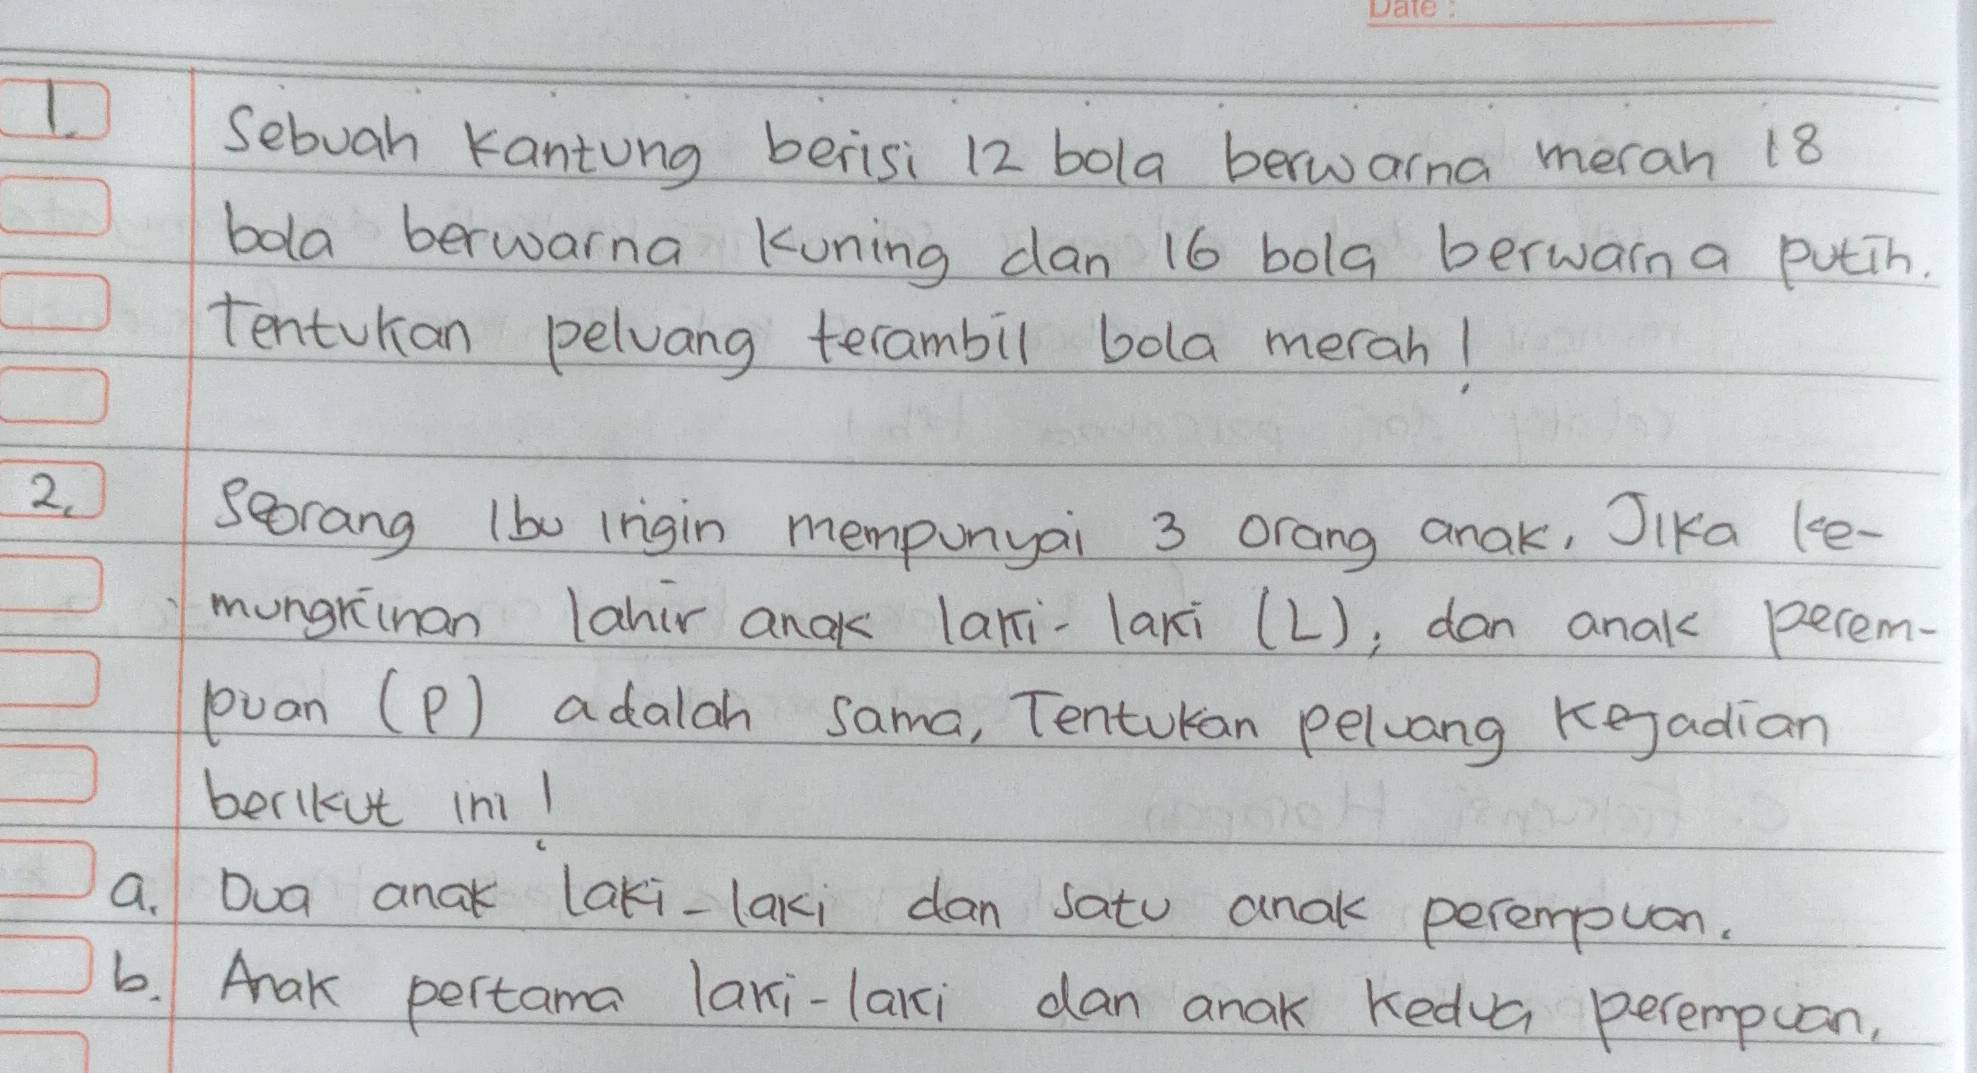 Date :
1. Sebuah kantung berisi 12 bola berwarna merah 18
bola berwarna kuning dan 16 bola berwarna putih.
Tentukan peluang terambil bola merah!
2. Seorang Ibu ingin mempunyai 3 orang anak, Jika ke-
mungkinan lahir anak laki-laki (L), dan anak perem-
puan (P) adalah sama, Tentukan peluang kejadian
berikut ini!
a. Dua anak laki-laki dan satu anak perempuan.
b. Anak pertama laki-laki dan anak kedua perempuan.